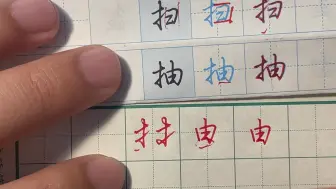 扫 扫 扫
抽 抽 抽
扌 扌 由 由